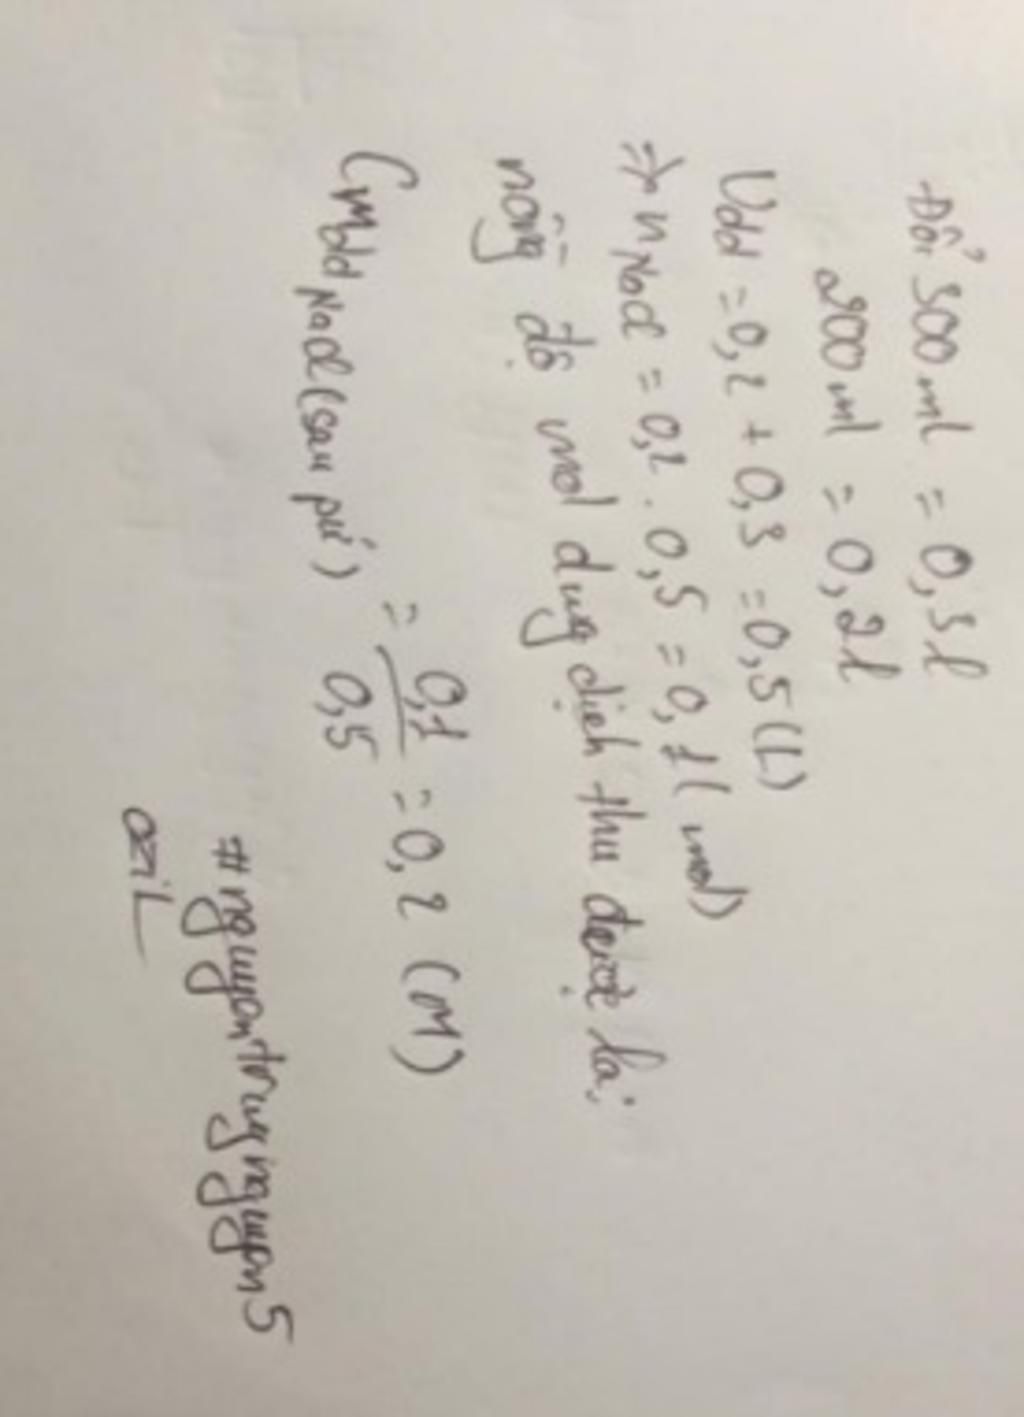 Đổi 300 ml = 0,3 l
200 ml = 0,2 l
Vdd = 0,2 + 0,3 = 0,5 (L)
=> nNaCl = 0,2 . 0,5 = 0,1 (mol)
nồng độ mol dung dịch thu được là:
CMdd NaCl (sau pứ) = 0,1 / 0,5 = 0,2 (M)
#nguyentrungnguyen5